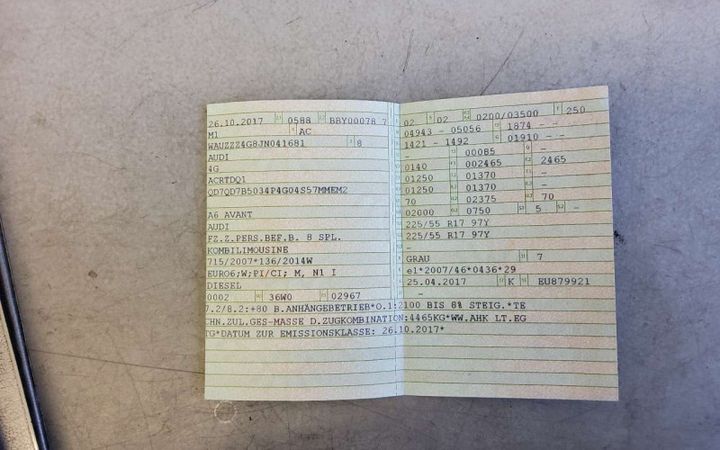 26.10.2017 0588 BBY00078 7
M1 AC
WAUZZZ4G8JN041681 8
AUDI
4G
ACRTDQ1
QD7QD7B5034P4G04S57MMEM2
A6 AVANT
AUDI
FZ.Z.PERS.BEF.B. 8 SPL.
KOMBILIMOUSINE
715/2007*136/2014W
EURO6;W;PI/CI; M, N1 I
DIESEL
0002 36W0 02967
02 02 0200/03500 250
04943 - 05056 1874 - -
1421 - 1492 01910 - -
- 00085 -
0140 002465 2465
01250 01370 -
01250 01370 -
70 02375 70
02000 0750 5 -
225/55 R17 97Y
225/55 R17 97Y
-
GRAU 7
e1*2007/46*0436*29
25.04.2017 K EU879921
-
7.2/8.2:+80 B.ANHÄNGEBETRIEB*O.1:2100 BIS 8% STEIG.*TE
CHN.ZUL.GES-MASSE D.ZUGKOMBINATION:4465KG*WW.AHK LT.EG
TG*DATUM ZUR EMISSIONSKLASSE: 26.10.2017*